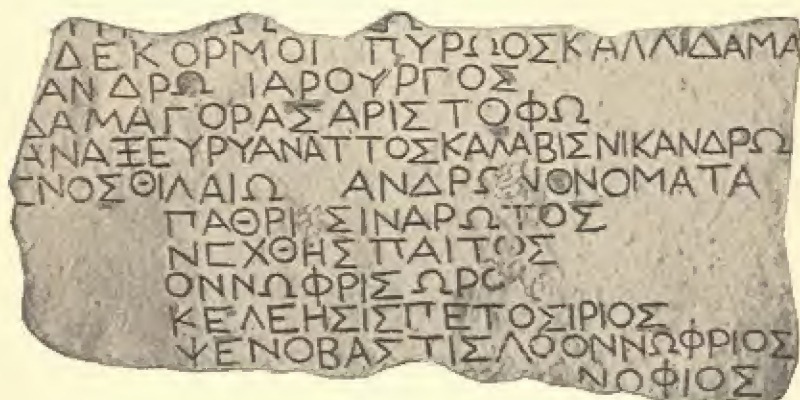 ΔΕΚΟΡΜΟΙ ΠΥΡΩΟΣΚΑΛΛΙΔΑΜΑ
ΑΝΔΡΩ ΙΑΡΟΥΡΓΟΣ
ΔΑΜΑΓΟΡΑΣΑΡΙΣΤΟΦΩ
ΑΝΑΞΕΥΡΥΑΝΑΤΤΟΣΚΑΛΑΒΙΣΝΙΚΑΝΔΡΩ
ΕΝΟΣΘΙΛΑΙΩ ΑΝΔΡΩΝΟΝΟΜΑΤΑ
ΠΑΘΡΙ ΣΙΝΑΡΩΤΟΣ
ΝΕΧΘΗΣΠΑΙΤΟΣ
ΟΝΝΩΦΡΙΣ ΩΡΟ
ΚΕΛΕΗΣΙΣΠΕΤΟΣΙΡΙΟΣ
ΨΕΝΟΒΑΣΤΙΣΛΟΟΝΝΩΦΡΙΟΣ
ΝΩΦΙΟΣ